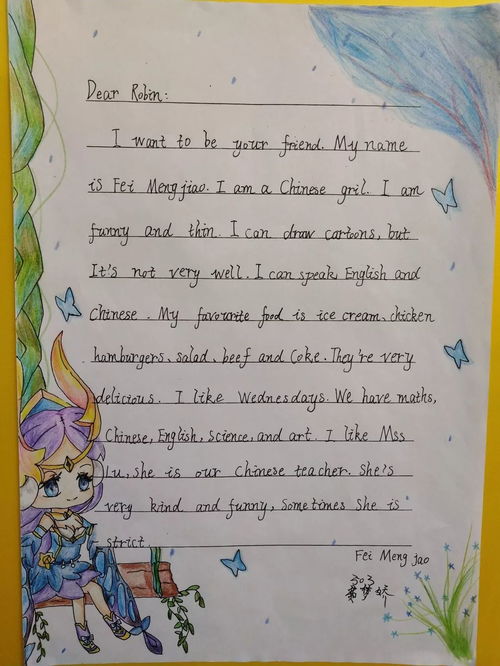 Dear Robin:
I want to be your friend. My name
is Fei Mengjiao. I am a Chinese gril. I am
funny and thin. I can draw cartoons, but
It's not very well. I can speak English and
Chinese. My favourite food is ice cream、chicken
hamburgers、salad、beef and Coke. They're very
delicious. I like Wednesdays. We have maths,
Chinese, English, science, and art. I like Mss
Lu, she is our Chinese teacher. She's
very kind and funny, Sometimes she is
strict
Fei Meng jao
303
梦娇